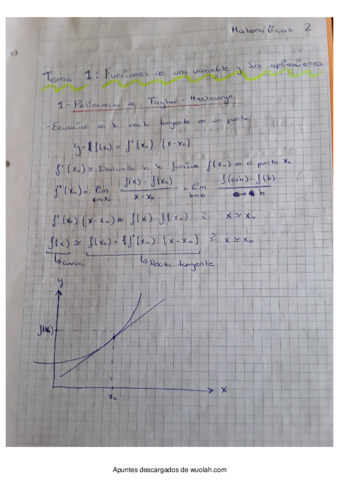 Matemáticas 2
Tema 1: Funciones de una variable y sus aplicaciones
1- Polinomios de Taylor - Maclauryn
-Ecuación de la recta tangente en un punto
y - f(x₀) = f'(x₀) (x-x₀)
f'(x₀) = Derivada de la función f(x) en el punto x₀
f'(x₀) = lim f(x) - f(x₀) / x - x₀ = lim
f'(x₀) (x-x₀) ≃ f(x) - f(x₀) si x ≃ x₀
f(x) ≃ f(x₀) + f'(x₀) · (x-x₀) si x ≃ x₀
↳ curva ↳ Recta tangente
y
f(x₀)
x₀
x
Apuntes descargados de wuolah.com